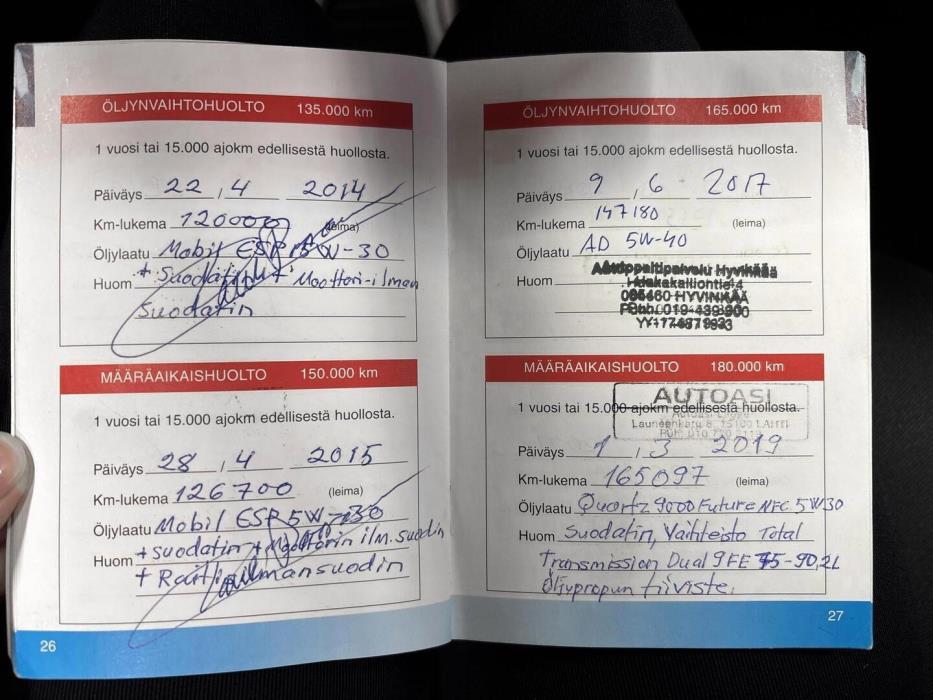 ÖLJYNVAIHTOHUOLTO 135.000 km
1 vuosi tai 15.000 ajokm edellisestä huollosta.
Päiväys 22 / 4 2014
Km-lukema 120000 (leima)
Öljylaatu Mobil ESP 5W-30
Huom + Suodatin + Moottori-ilman
suodatin
MÄÄRÄAIKAISHUOLTO 150.000 km
1 vuosi tai 15.000 ajokm edellisestä huollosta.
Päiväys 28 / 4 2015
Km-lukema 126700 (leima)
Öljylaatu Mobil ESP 5W-30
Huom +suodatin + Moottorin ilm.suodin
+ Raitisilmansuodin
26
ÖLJYNVAIHTOHUOLTO 165.000 km
1 vuosi tai 15.000 ajokm edellisestä huollosta.
Päiväys 9 / 6 2017
Km-lukema 147180 (leima)
Öljylaatu AD 5W-40
Huom
Hyvinkää
HYVINKÄÄ
MÄÄRÄAIKAISHUOLTO 180.000 km
AUTOASI
1 vuosi tai 15.000 ajokm edellisestä huollosta.
Launeenkatu 8, 15100 LAHTI
Päiväys 1 / 3 2019
Km-lukema 165097 (leima)
Öljylaatu Quartz 9000 Future NFC 5W30
Huom Suodatin, Vaihteisto Total
Transmission Dual 9 FE 75-90, 2L
öljypropun tiiviste.
27